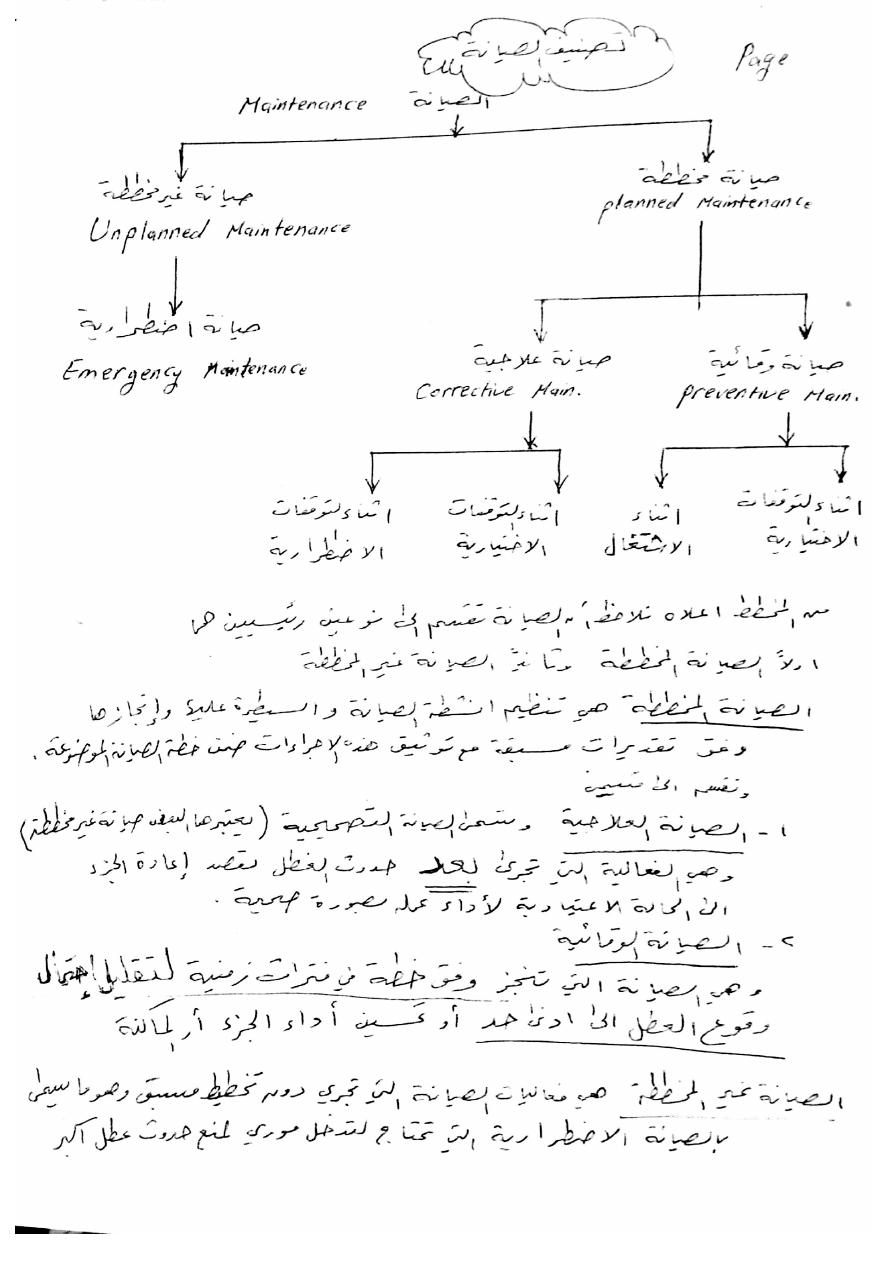 تصنيف الصيانة
Page
Maintenance الصيانة
صيانة مخططة
planned Maintenance
صيانة غير مخططة
Unplanned Maintenance
صيانة اضطرارية
Emergency Maintenance
صيانة علاجية
Corrective Main.
صيانة وقائية
preventive Main.
اثناء التوقفات
الاختيارية
اثناء
الاشتغال
اثناء التوقفات
الاختيارية
اثناء التوقفات
الاضطرارية
من المخطط اعلاه نلاظ أن الصيانة تقسم الى نوعين رئيسيين هما
اولاً الصيانة المخططة وثانياً الصيانة غير المخططة
الصيانة المخططة هي تنظيم انشطة الصيانة والسيطرة عليها وإنجازها
وفق تقديرات مسبقة مع توثيق هذه الاجراءات ضمن خطة الصيانة الموضوعة .
وتقسم الى قسمين
١- الصيانة العلاجية وتسمى الصيانة التصحيحية (يعتبرها البعض صيانة غير مخططة)
وهي الفعالية التي تجرى بعد حدوث العطل لقصد إعادة الجزء
الى الحالة الاعتيادية لأداء عمله بصورة صحيحة .
٢- الصيانة الوقائية
وهي الصيانة التي تنجز وفق خطة في فترات زمنية لتقليل إحتمال
وقوع العطل الى ادنى حد أو تحسين أداء الجزء أو الماكنة
الصيانة غير المخططة هي فعاليات الصيانة التي تجري دون تخطيط مسبق وهو ما يسمى
بالصيانة الاضطرارية التي تحتاج لتدخل فوري لمنع حدوث عطل اكبر